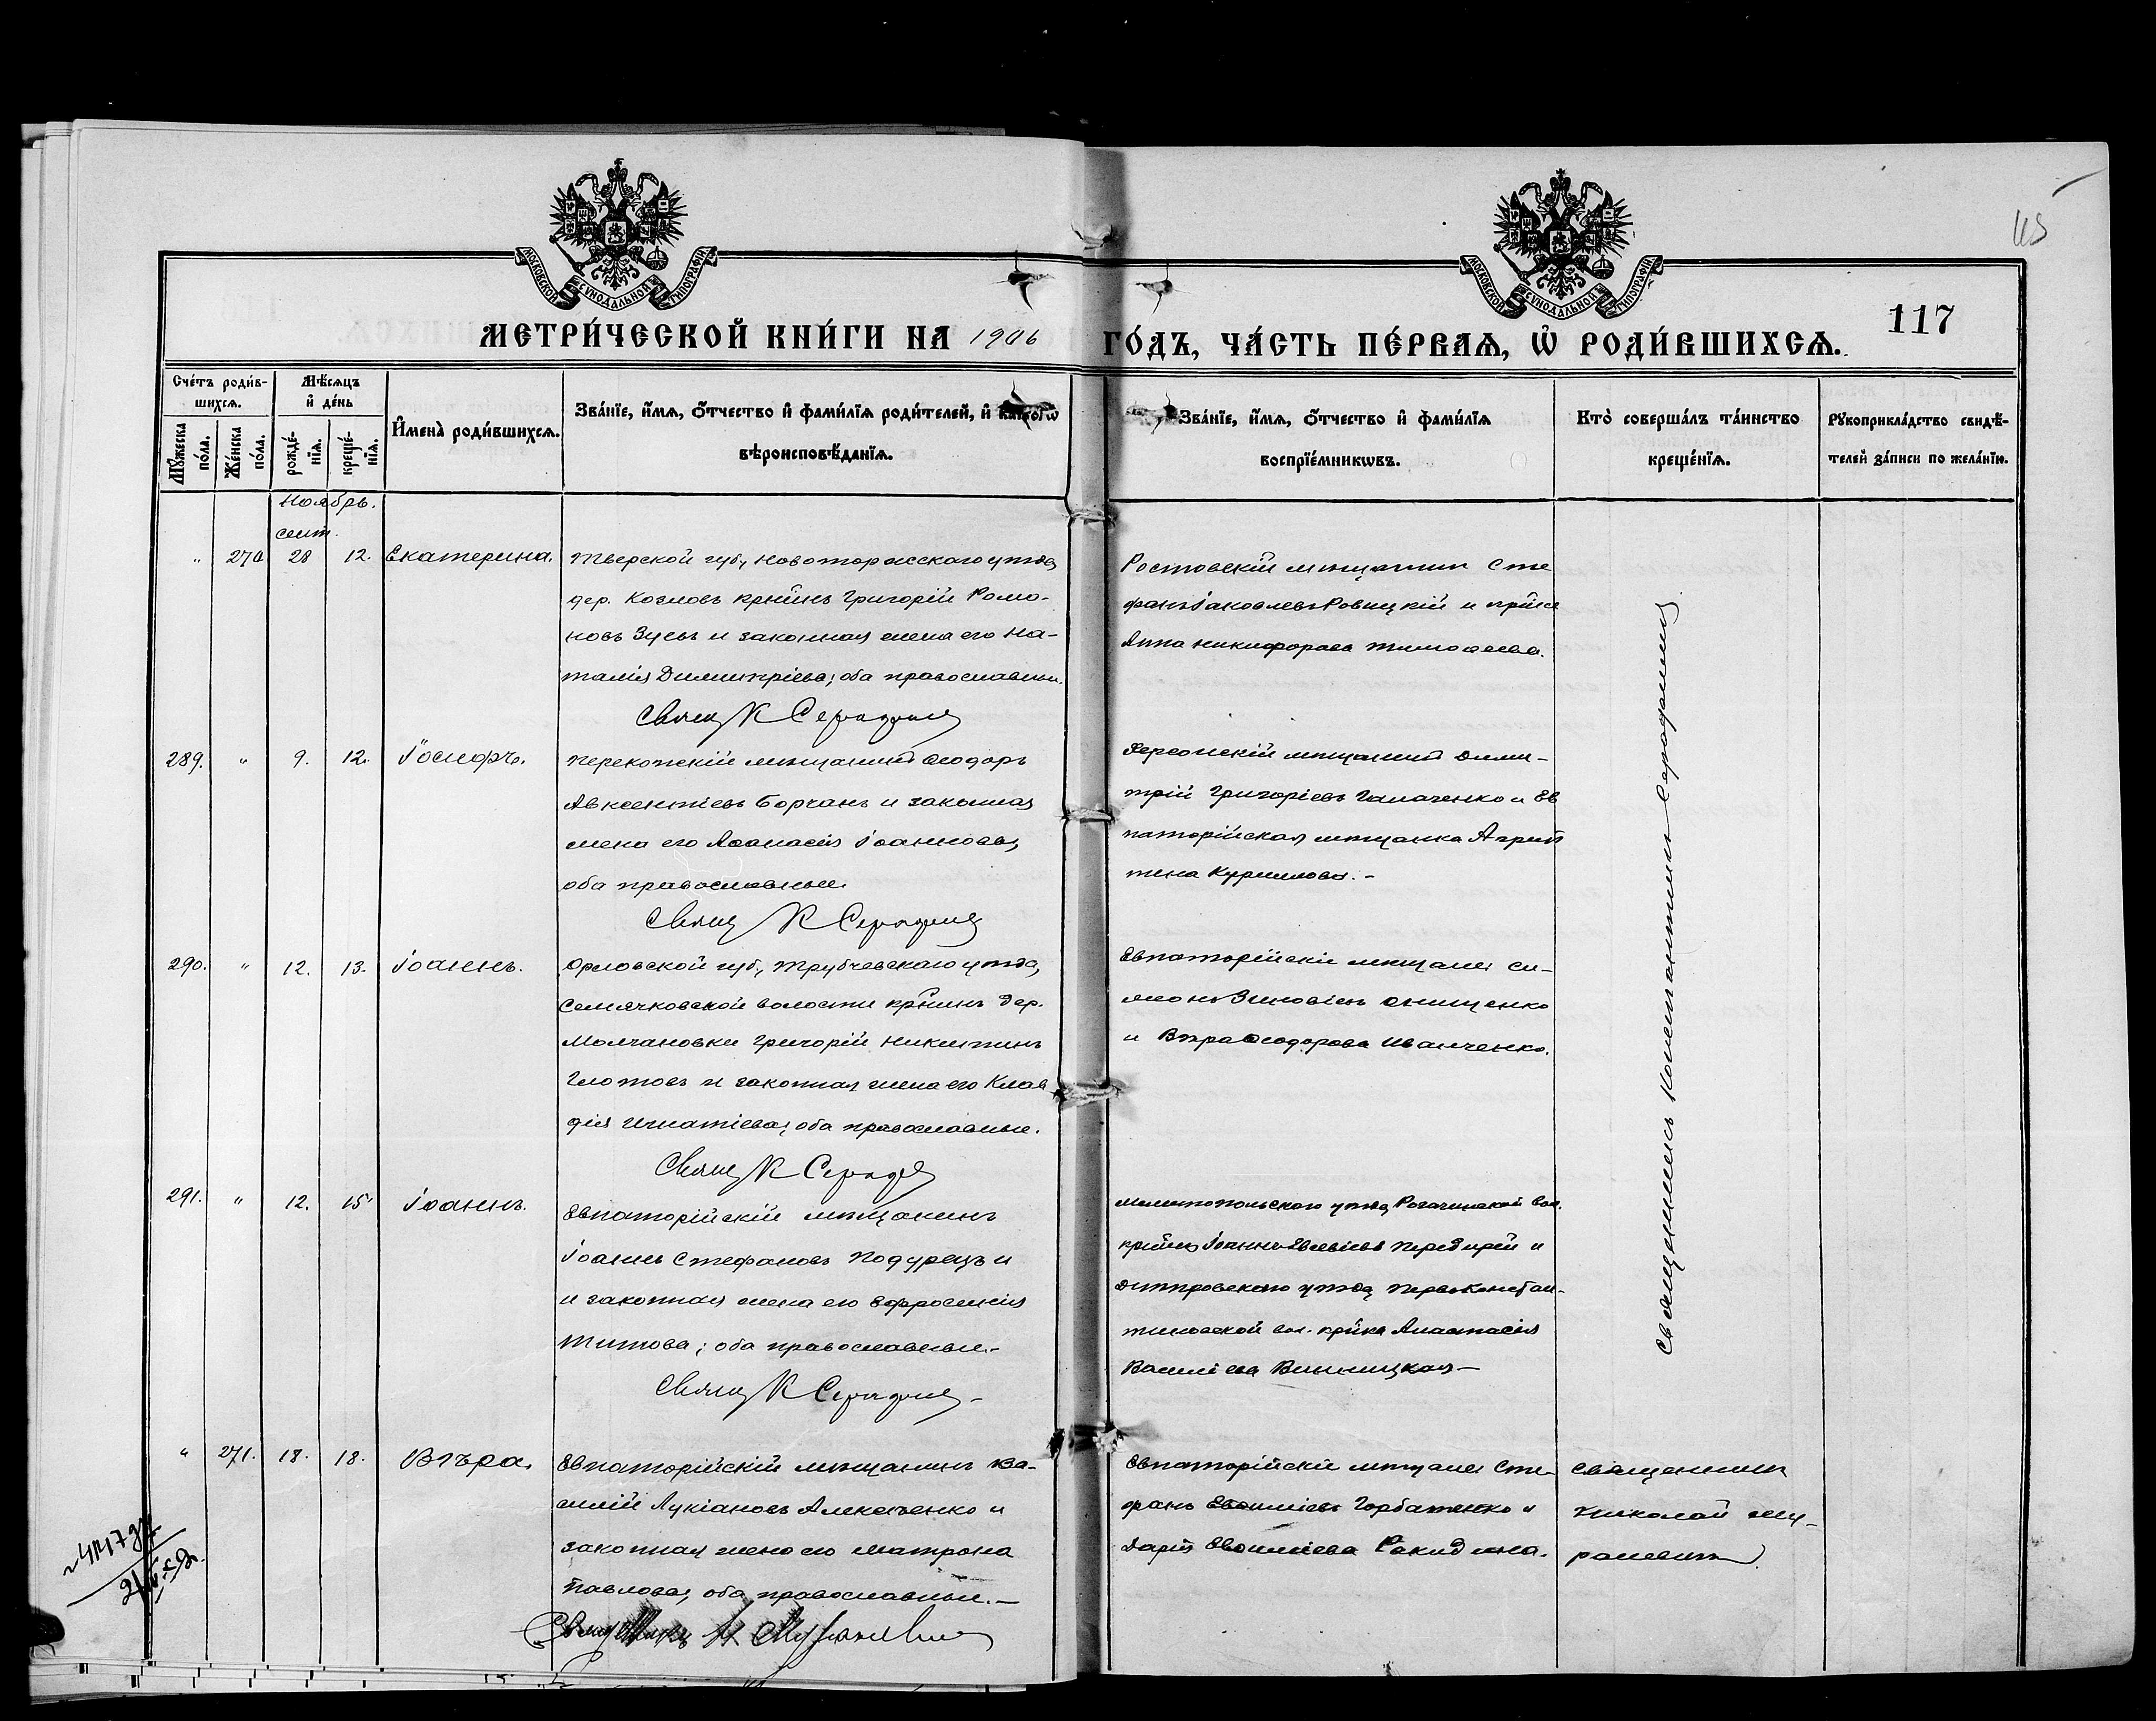 МОСКОВСКОЙ СѴНОДАЛЬНОЙ ТИПОГРАФІИ
МОСКОВСКОЙ СѴНОДАЛЬНОЙ ТИПОГРАФІИ
115
117
МЕТРИ́ЧЕСКОЙ КНИ́ГИ НА 1906 ГО́ДЪ, ЧА́СТЬ ПЕ́РВАѦ, Ѡ҆ РОДИ́ВШИХСѦ.
Сче́тъ роди́в-
шихсѧ.
Мѣ́сѧцъ
и҆ де́нь
Мꙋ́жеска по́ла.
Же́нска по́ла.
рожде́-нїѧ.
креще́-нїѧ.
И҆мена̀ роди́вшихсѧ.
Зва́нїе, и҆́мѧ, ѻ҆́тчество и҆ фами́лїѧ роди́телей, и҆ како́гѡ
вѣроисповѣ́данїѧ.
Зва́нїе, и҆́мѧ, ѻ҆́тчество и҆ фами́лїѧ
воспрїе́мникѡвъ.
Кто̀ соверша́лъ та́инство
креще́нїѧ.
Рꙋкоприкла́дство свидѣ́-
телей за́писи по жела́нїю.
Ноябрь.
сент.
" 270 28 12. Екатерина.
Тверской губ., Новоторжсскаго уѣзда,
дер. Козловъ крнинъ Григорій Рома-
новъ Зуевъ и законная жена его На-
талія Димитріева; оба православны.
Свящ К Серафим
Ростовскій мѣщанин Сте
фанъ Іаковлевъ Ровицкій и
Анна Никифорова Тимоѳеева.
289. " 9. 12. Іосифъ.
Перекопскій мѣщанинъ Ѳеодоръ
Авксентіевъ Борчанъ и законная
жена его Аѳанасія Іоаннова,
оба православные.
Свящ К Серафим
Херсонскій мѣщанинъ Дими-
трій Григоріевъ Гамаченко и Ев
паторійская мѣщанка Агрип
пина Курилова. -
290. " 12. 13. Іоаннъ.
Орловской губ., Трубчевскаго уѣзда,
Семячковской волости крнинъ дер.
Молчановки Григорій Никитинъ
Глотовъ и законная жена его Клав
дія Игнатіева; оба православные.
Свящ К Сераф
Евпаторійскіе мѣщане Си-
меонъ Зиновіевъ Онищенко
и Вѣра Ѳеодорова Иванченко.
291. " 12. 15 Іоаннъ.
Евпаторійскій мѣщанинъ
Іоаннъ Стефановъ Подурецъ и
и законная жена его Евфросинія
Титова; оба православные.-
Свящ К Серафим -
Мелитопольскаго уѣзда вол.
Іоаннъ и
Днѣпровскаго уѣзда Первоконстан-
тиновской вол. Анастасія
Василіева Винницкая -
Священникъ Константинъ
" 271. 18. 18. Вѣра.
Евпаторійскій мѣщанинъ Ва-
силій Лукіановъ Алексѣенко и
законная жена его Матрона
Павлова, оба православные. -
Священникъ Н
Евпаторійскіе мѣщане Сте-
фанъ Евѳиміевъ Горбатенко и
Дарія Евѳиміева
Священник
Николай